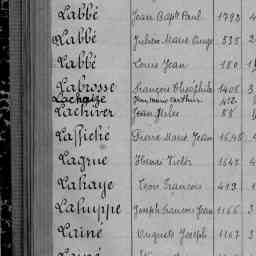 Labbé Jean Bapt Paul 1793
Labbé Julien Marie Ange 535
Labbé Louis Jean 180
Labrosse François Théophile 1408
Lachaize Arthur 412
Lachiver Jean Jules 88
Laffiché Pierre Marie Jean 1648
Lagrue Henri Victor 1645
Lahaye Léon François 419
Lahuppe Joseph François Jean 1166 3
Lainé Auguste Joseph 1167 3